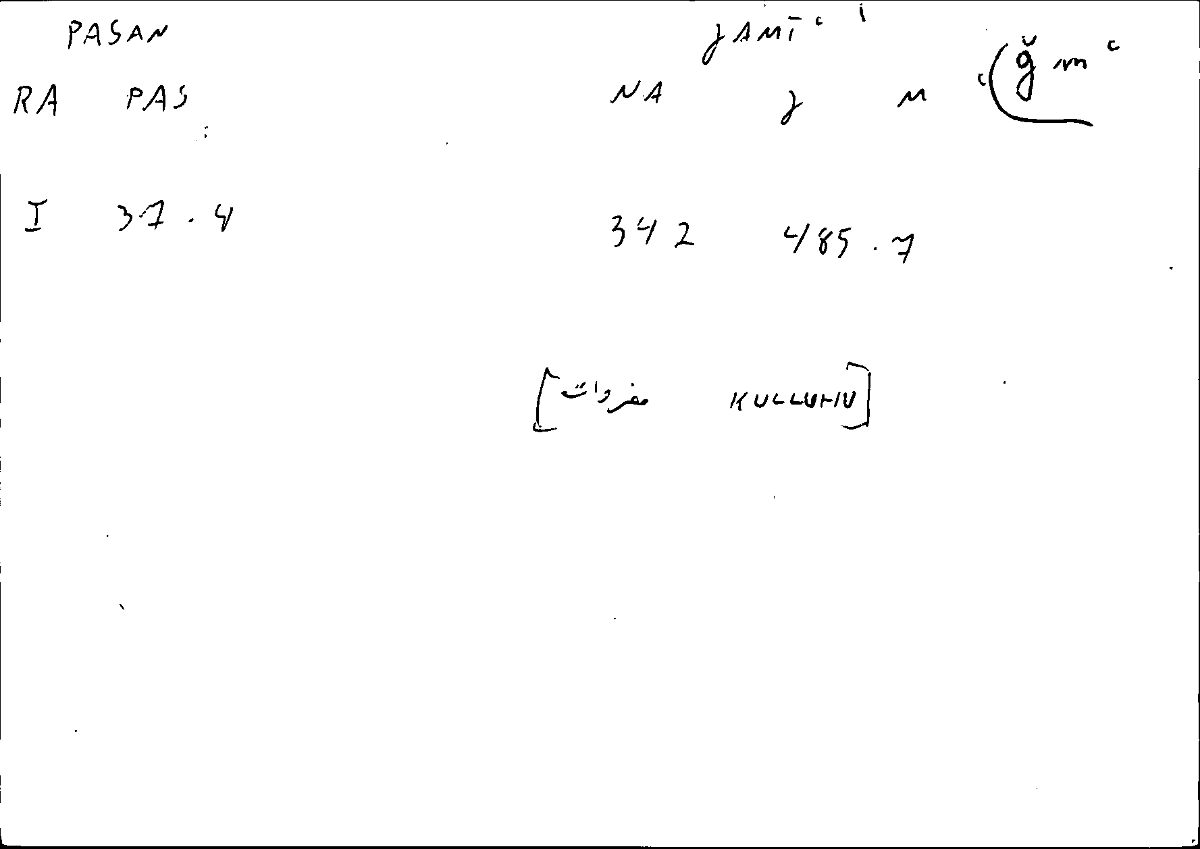 PASAN JAMĪʿ
RA PAS NA J M ʿ ǧmʿ
I 37.4 342 485.7
[مفردات KULLUHU]